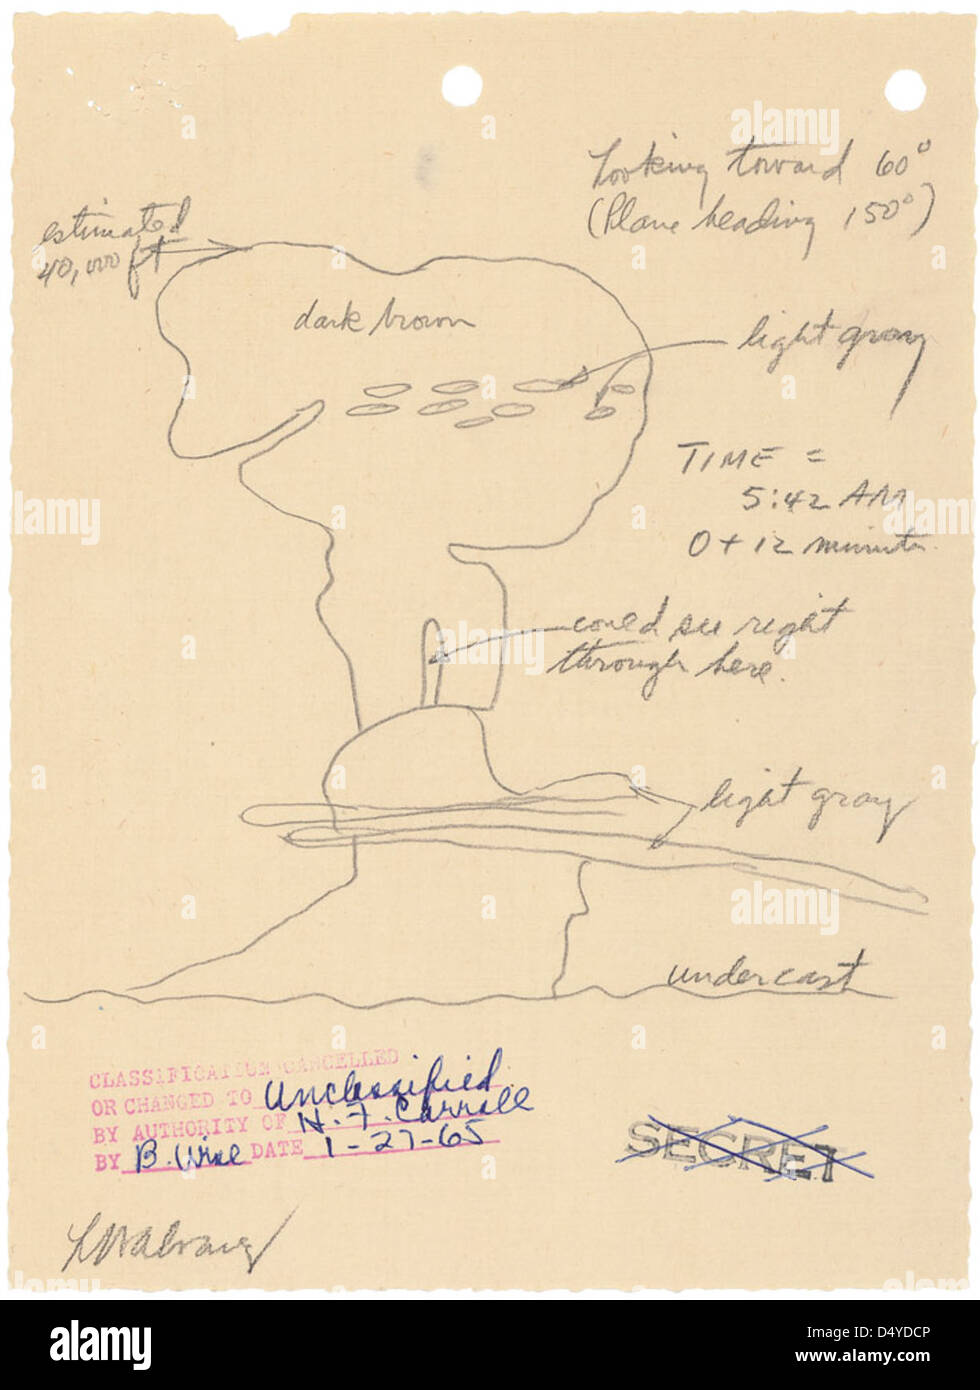 Looking toward 60°
(Plane heading 150°)
estimated
40,000 ft
dark brown
light gray
TIME =
5:42 AM
0 + 12 minutes
could see right
through here.
light gray
undercast
CLASSIFICATION CANCELLED
OR CHANGED TO Unclassified
BY AUTHORITY OF H. F. Carroll
BY B. Wise DATE 1-27-65
SECRET
L W Alvarez
alamy
Image ID: D4YDCP
www.alamy.com